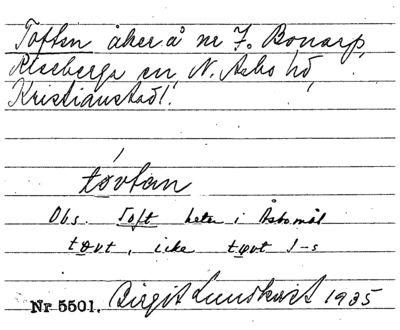 Toften åker å nr 7. Bonarp,
Riseberga sn, N. Åsbo hd,
Kristianstad l.
tóvtan
Obs. Toft heter i Åsbomål
tovt, icke tωvt l-s
Nr 5501. Birgit Lundkvist 1935